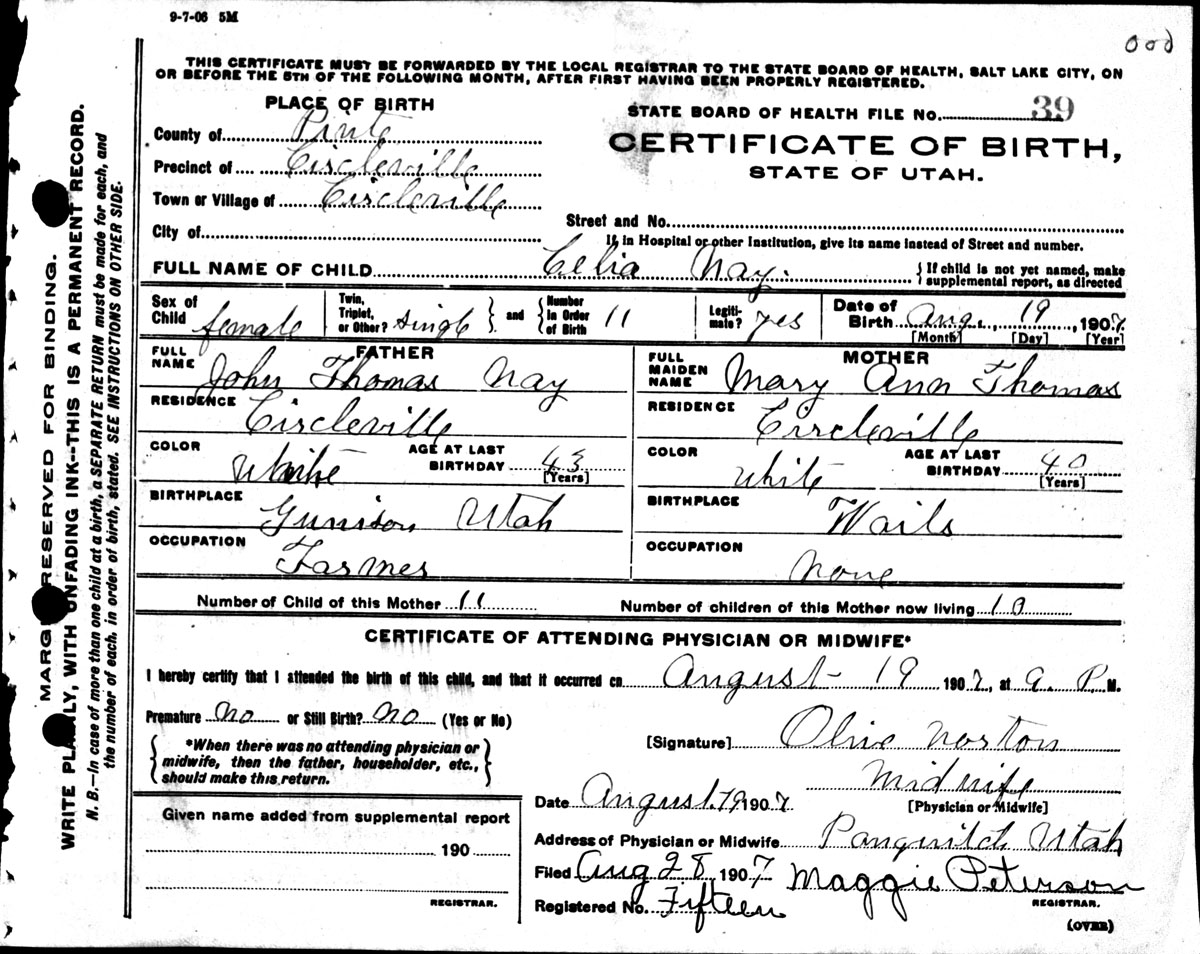 9-7-06 5M
000
THIS CERTIFICATE MUST BE FORWARDED BY THE LOCAL REGISTRAR TO THE STATE BOARD OF HEALTH, SALT LAKE CITY, ON
OR BEFORE THE 5TH OF THE FOLLOWING MONTH, AFTER FIRST HAVING BEEN PROPERLY REGISTERED.
PLACE OF BIRTH
County of Piute
Precinct of Circleville
Town or Village of Circleville
City of
STATE BOARD OF HEALTH FILE NO. 39
CERTIFICATE OF BIRTH,
STATE OF UTAH.
Street and No.
If in Hospital or other Institution, give its name instead of Street and number.
FULL NAME OF CHILD Celia Nay. {If child is not yet named, make
supplemental report, as directed
Sex of Child female
Twin, Triplet, or Other? single } and { Number in Order of Birth 11
Legiti-mate? yes
Date of Birth Aug. 19, 1907
[Month] [Day] [Year]
FATHER
FULL NAME John Thomas Nay
RESIDENCE Circleville
COLOR White AGE AT LAST BIRTHDAY 43
[Years]
BIRTHPLACE Gunison Utah
OCCUPATION Farmer
MOTHER
FULL MAIDEN NAME Mary Ann Thomas
RESIDENCE Circleville
COLOR White AGE AT LAST BIRTHDAY 40
[Years]
BIRTHPLACE Wails
OCCUPATION None
Number of Child of this Mother 11 Number of children of this Mother now living 10
CERTIFICATE OF ATTENDING PHYSICIAN OR MIDWIFE*
I hereby certify that I attended the birth of this child, and that it occurred on August 19 1907, at 9 P.M.
Premature No or Still Birth? No (Yes or No)
{*When there was no attending physician or
midwife, then the father, householder, etc.,
should make this return.}
[Signature] Olive Norton
Midwife
[Physician or Midwife]
Date August 19 1907
Address of Physician or Midwife Panguitch Utah
Filed Aug 28 1907 Maggie Peterson
REGISTRAR.
Registered No. Fifteen
(OVER)
Given name added from supplemental report
190
REGISTRAR.
MARGIN RESERVED FOR BINDING.
WRITE PLAINLY, WITH UNFADING INK--THIS IS A PERMANENT RECORD.
N. B.—In case of more than one child at a birth, a SEPARATE RETURN must be made for each, and
the number of each, in order of birth, stated. SEE INSTRUCTIONS ON OTHER SIDE.